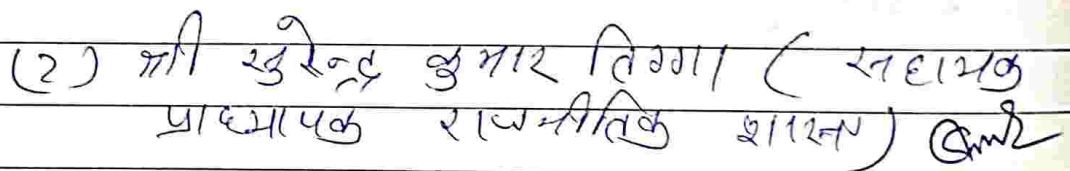 (2) श्री सुरेन्द्र कुमार तिग्गा ( सहायक
प्राध्यापक राजनीतिक शास्त्र)